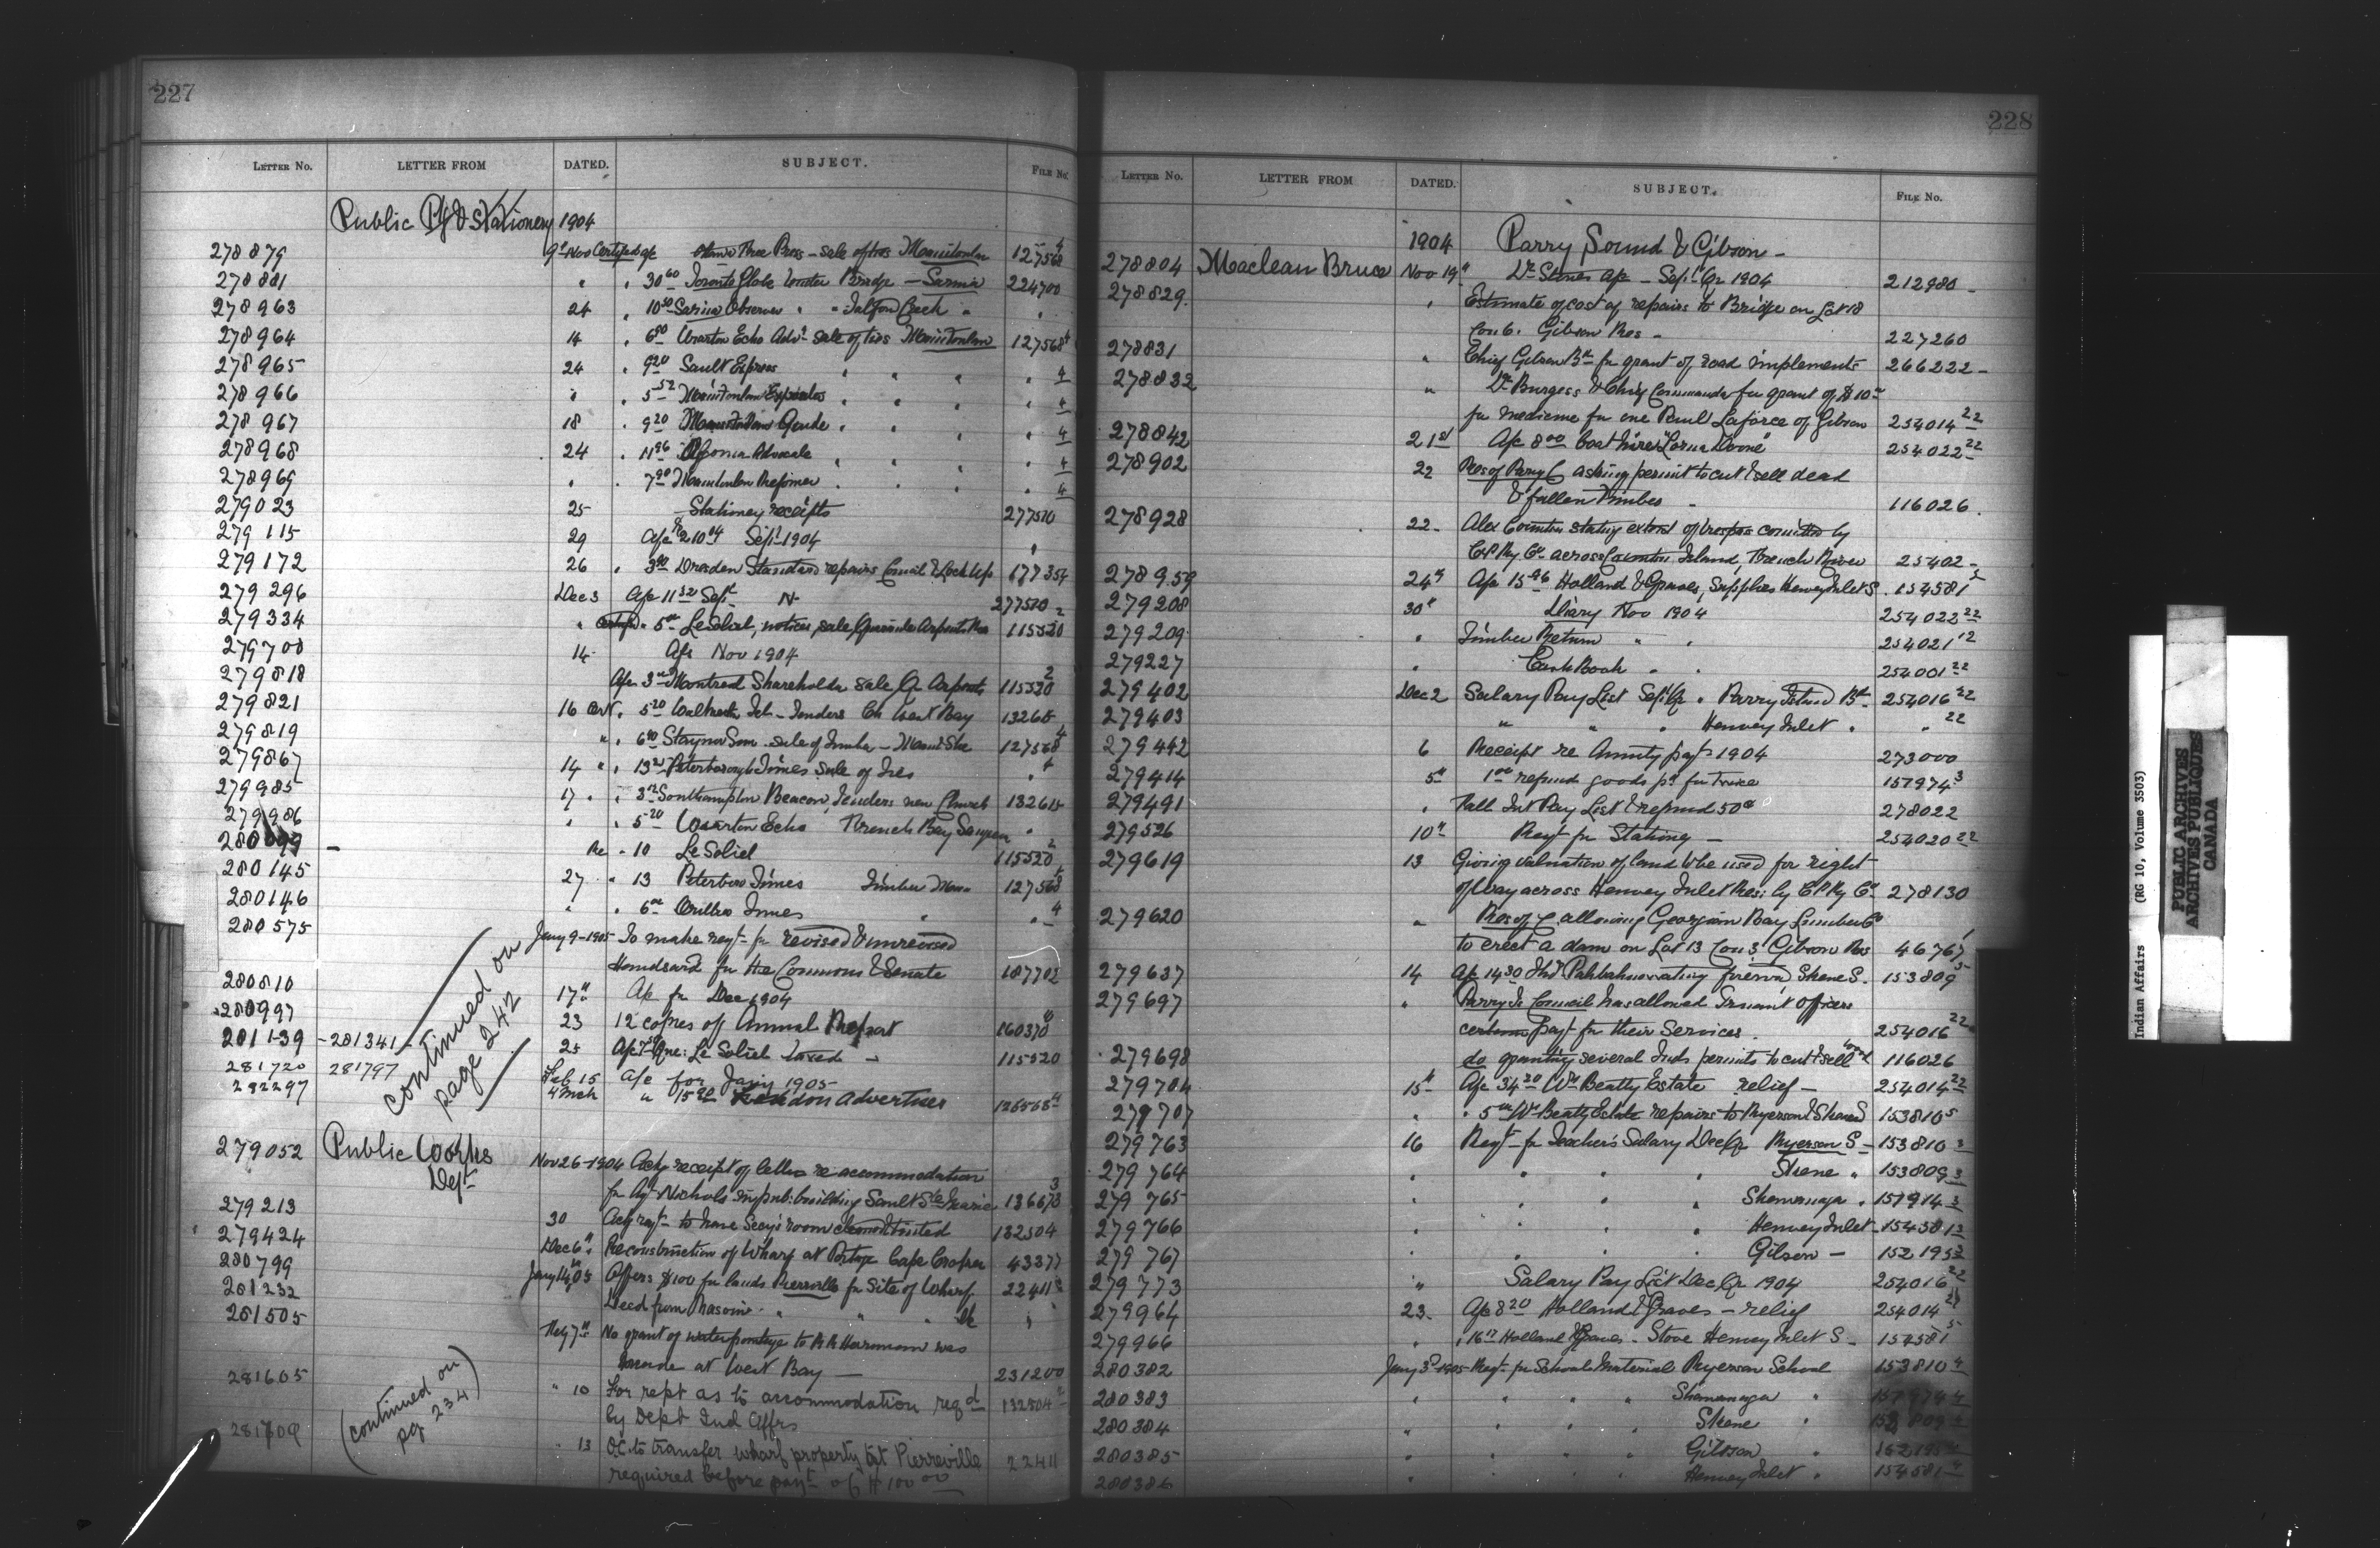 227
LETTER NO. LETTER FROM DATED. SUBJECT. FILE NO.
Public Ptg & Stationery 1904
278879 9" Nov Certified a/c Ottawa Free Press - sale of ties Manitoulin 127568 4
278881 " " 30 60 Toronto Globe Bridge - Sarnia 224700
278963 24 " 10 50 Sarnia Observer " " Talfourd Creek "
278964 14 " 6 80 Wiarton Echo Advt sale of ties Manitoulin 127568 4
278965 24 " 9 20 Sault Express " " " " 4
278966 " " 5 52 Manitoulin Expositor " " " " 4
278967 18 " 9 20 Manitoulin Guide " " " " 4
278968 24 " 11 96 Algoma Advocate " " " " 4
278969 " " 7 90 Manitoulin Reformer " " " " 4
279023 25 Stationery receipts 277510
279115 29 a/c 210 04 Sept 1904 "
279172 26 " 3 90 Dresden Standard repairs Council & Lock Up 177354
279296 Dec 3 a/c 11 32 Sept 277510 2
279334 " Certified " 5 00 Le Soleil, notices, sale, 115520
279700 14 a/c Nov 1904
279818 a/c 3 Montreal Shareholder sale 115520 2
279821 16 Cert. " 5 20 Tel - Tenders Ch West Bay 13265
279819 " " 6 90 Stayner Sun sale of timber - 127568 4
279867 14 " " 13 Peterborough Times sale of Ties " 4
279985 17 " " 3 Southampton Beacon, Tenders new Church 132615
279986 " " 5 20 Wiarton Echo French Bay Saugeen "
280099 - " 10 Le Soleil 115520 2
280145 27 " 13 Peterboro Times Timber 127568 4
280146 " " 6 Orillia Times " " 4
280575 Jany 9-1905 To make reqt for revised & unrevised
Handsard for the Commons & Senate 187702
280810 17" a/c for Dec 1904
280997 23 12 copies of Annual Report 160370
281139 - 281341 - 25 a/c Que: Le Soleil taxed - 115520
281720 281797 Feb 15 a/c for Jany 1905
282297 4 Mch " 15 20 London Advertiser 126568 4
continued on
page 242
279052 Public Works
Dept
Nov 26-1904 Ackg receipt of letter re accommodation
for Agt Nichols in pub: building Sault Ste Marie 136673 3
279213 30 Ack reqt to have Secy's room cleaned & tinted 132504
279424 Dec 6" Reconstruction of Wharf at Portage Cape Croker 43377
280799 Jany 14/05 Offers $100 for lands Pierreville for Site of Wharf 22411
281232 Deed from " " "
281505 Feby 7" No grant of water frontage to R A Harrman was
made at West Bay - 231200
281605 " 10 For rept as to accommodation reqd 132504
by Dept Ind Affrs
281709 " 13 OC. to transfer wharf property at Pierreville 22411
required before payt of $100 00
(continued on
pg 234)
228
LETTER NO. LETTER FROM DATED. SUBJECT. FILE NO.
1904 Parry Sound & Gibson -
278804 Maclean Bruce Nov 19" Dr Stones a/c - Sept Qr 1904 212980 -
278829 " Estimate of cost of repairs to Bridge on Lot 18
Con 6. Gibson Res - 227260
278831 " Chief Gibson Bd for grant of road implements 266222 -
278832 " Dr Burgess & Chief Commanda for grant of $10 00
for medicine for one Paul Laforce of Gibson 254014 22
278842 21st A/c 8 00 boat hire "Lorna Doone" 254022 22
278902 22 Res of Parry I. asking permit to cut & sell dead
& fallen timber - 116026.
278928 22 - Alex stating extent of trespass committed by
C.P. Ry Co across Island, French River 25402 -
278959 24" A/c 15 96 Holland & Graves, Supplies Henvey Inlet S. 154581 5
279208 30" Diary Nov 1904 254022 22
279209 " Timber Return " " 254021 12
279227 " Cash Book " " 254001 22
279402 Dec 2 Salary Pay List Sept Qr. Parry Island Bd 254016 22
279403 " " " Henvey Inlet " " 22
279442 6 Receipt re Annuity payt 1904 273000
279414 5" 1 00 refund goods pd for twice 157974 3
279491 " Fall Int Pay List & refund 50 c 278022
279526 10" Reqt for Stationg - 254020 22
279619 13 Giving valuation of land to be used for right
of way across Henvey Inlet Res: by C P Ry Co 278130
279620 " Res of C. allowing Georgian Bay Lumber Co
to erect a dam on Lot 13 Con 3 Gibson Res 46767
279637 14 A/c 14 30 firewood, Skene S. 153809 5
279697 " Parry Is Council has allowed Truant Officers
certain payt for their Services. 254016 22
279698 do granting several Inds permits to cut & sell wood 116026
279704 15" A/c 34 20 Wm Beatty Estate relief - 254014 22
279707 " " 5 Wm Beatty Estate repairs to Ryerson & Skene S 153810 5
279763 16 Reqt for Teacher's Salary Dec Qr Ryerson S - 153810 3
279764 " " " " Skene " 153809 3
279765 " " " " Shawanaga " 157974 3
279766 " " " " Henvey Inlet - 154581 3
279767 " " " " Gibson - 152195 3
279773 " Salary Pay List Dec Qr 1904 254016 22
279964 23. A/c 8 20 Holland & Graves - relief 254014 22
279966 " " 16 Holland & Graves - Stove Henvey Inlet S - 154581 5
280382 Jany 3rd 1905 Reqt for School Material Ryerson School 153810 4
280383 " " " " Shawanaga " 157974 4
280384 " " " " Skene " 153809 4
280385 " " " " Gibson " 152195 4
280386 " " " " Henvey Inlet " 154581 4
Indian Affairs (RG 10, Volume 3503)
PUBLIC ARCHIVES
ARCHIVES PUBLIQUES
CANADA